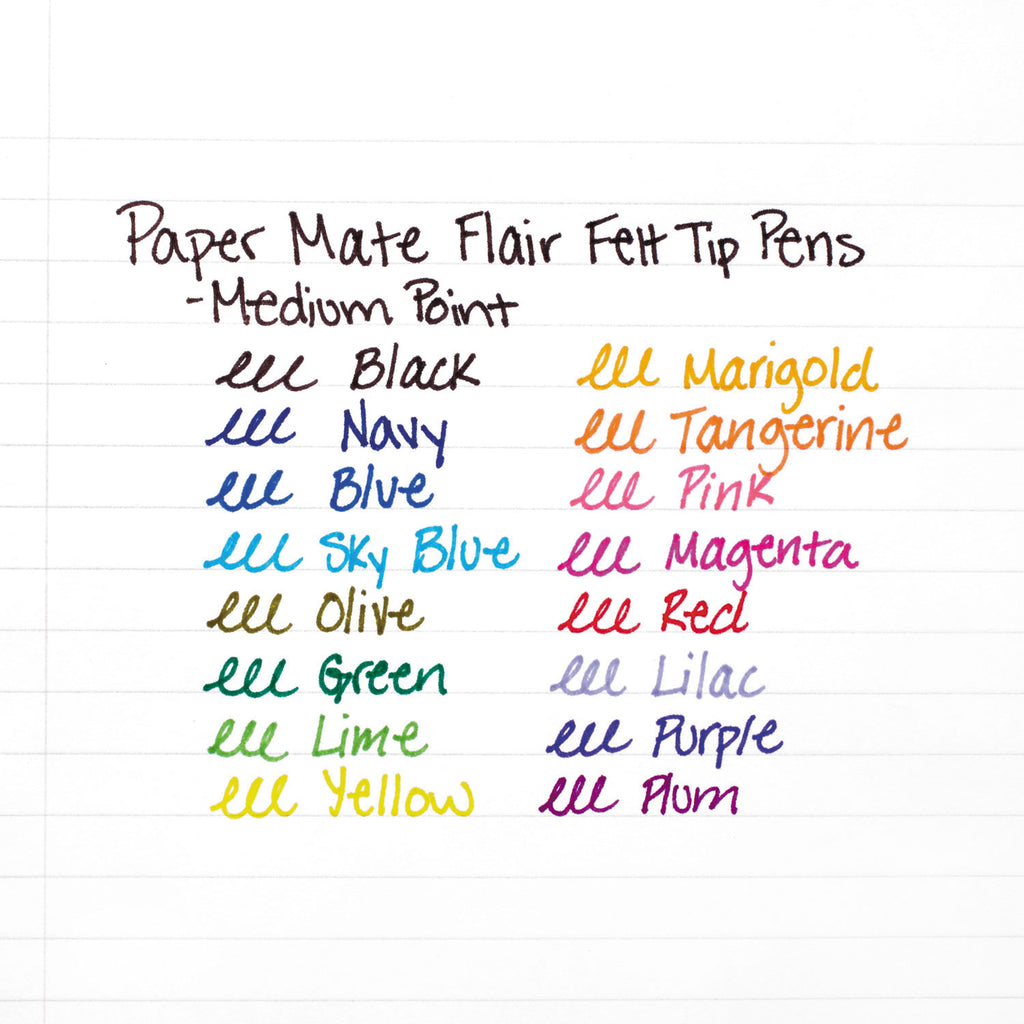 Paper Mate Flair Felt Tip Pens
-Medium Point
Black
Navy
Blue
Sky Blue
Olive
Green
Lime
Yellow
Marigold
Tangerine
Pink
Magenta
Red
Lilac
Purple
Plum